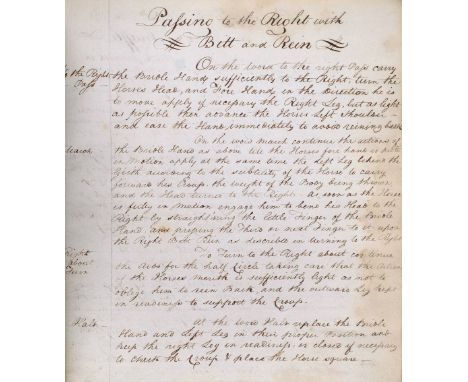 Passing to the Right with
Bitt and Rein
On the word to the right Pass carry
to the Right
Pass
the Bridle Hand sufficiently to the Right, turn the
Horses Head, and Fore Hand in the Direction he is
to move apply if necessary the Right Leg, but as light
as possible then advance the Horses Left Shoulder
and ease the Hand immediately to avoid reining back
On the word March continue the actions of
March
the Bridle Hand as above till the Horses fore hand is
in Motion apply at the same time the Left Leg behind the
Girth according to the subtilty of the Horse to carry
forward his Croup. the weight of the Body being thrown
and the Head turned to the Right as soon as the Horse
is fully in Motion engage him to bend his Head to the
Right by straightening the little Finger of the Bridle
Hand and pressing the Third or next Finger to it upon
the Right Bitt Rein as described in turning to the Right
To Turn to the Right about continue
Right
about
turn
the Aids for the half Circle taking care that the
of the Horses Mouth is sufficiently light as not to
oblige him to rein Back and the outward Leg kept
in readiness to support the Croup.
Halt
At the word Halt replace the Bridle
Hand and Left Leg in their proper Position and
keep the right Leg in readiness or closed if necessary
to check the Croup & place the Horse square